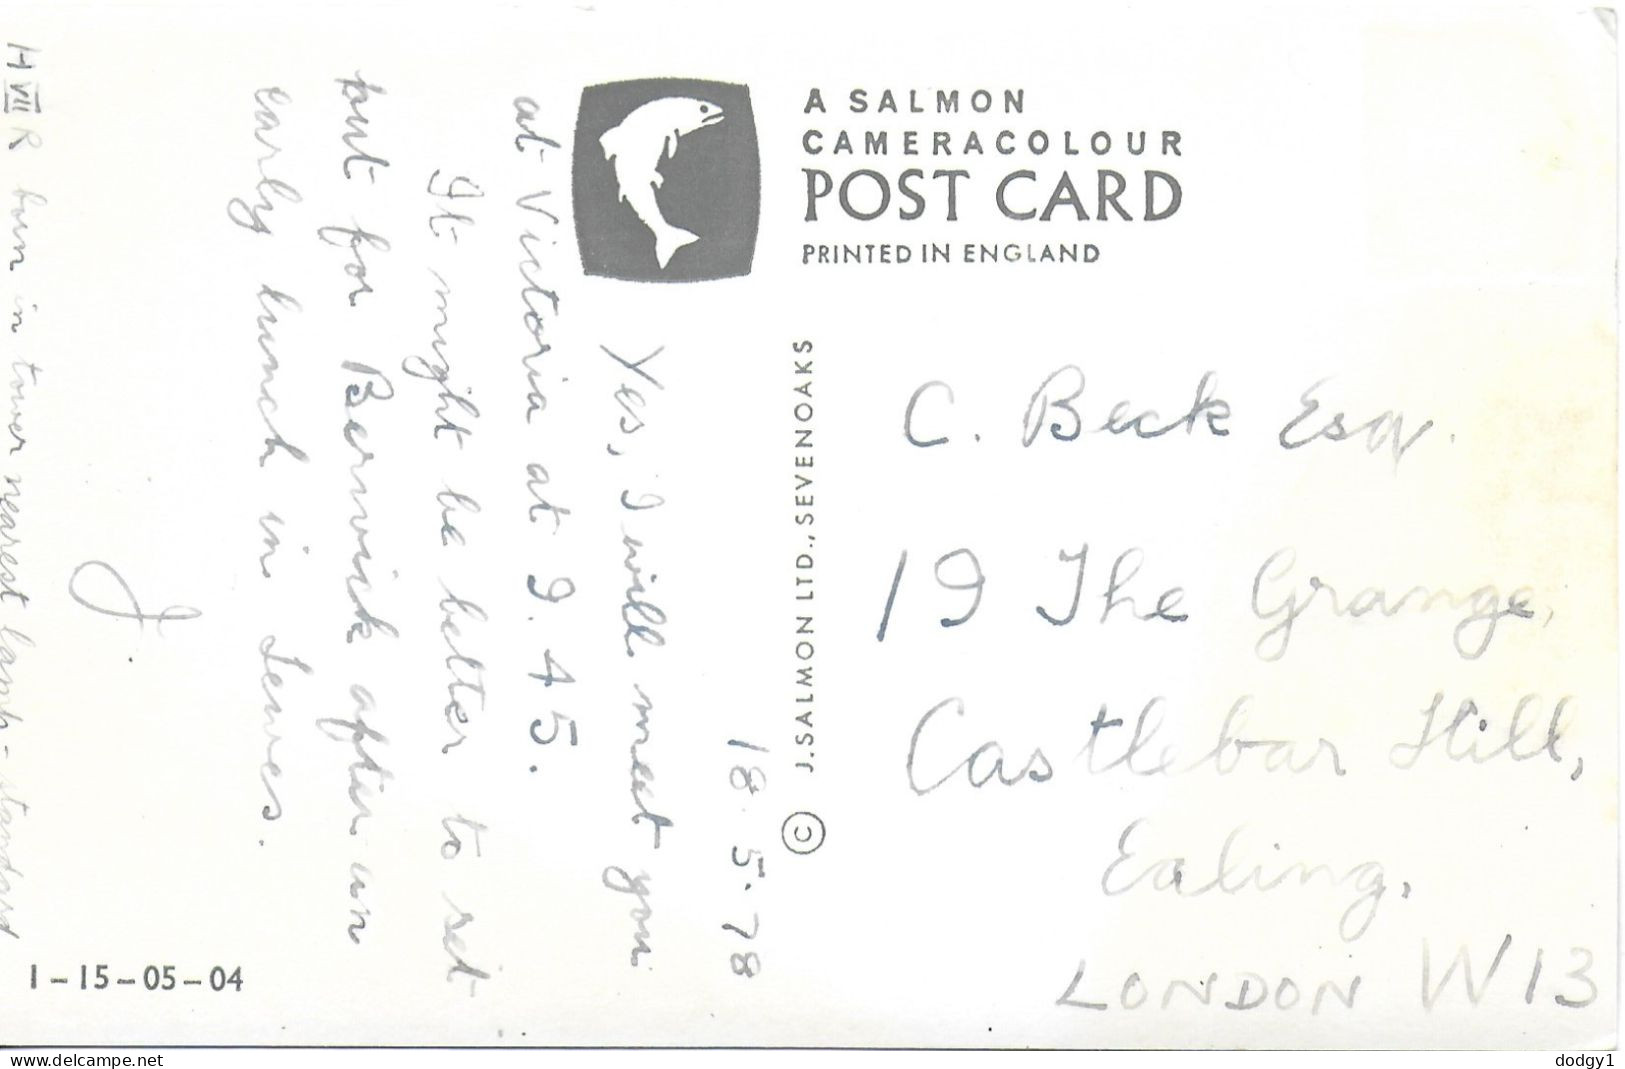 A SALMON
CAMERACOLOUR
POST CARD
PRINTED IN ENGLAND
© J.SALMON LTD., SEVENOAKS
18.5.78
Yes, I will meet you
at Victoria at 9.45.
It might be better to set
out for Berwick after an
early lunch in Lewes.
J.
H VII R burn in tower nearest lamp-standard
C. Beck Esq.
19 The Grange,
Castlebar Hill,
Ealing.
LONDON W13
1-15-05-04
www.delcampe.net
dodgy1